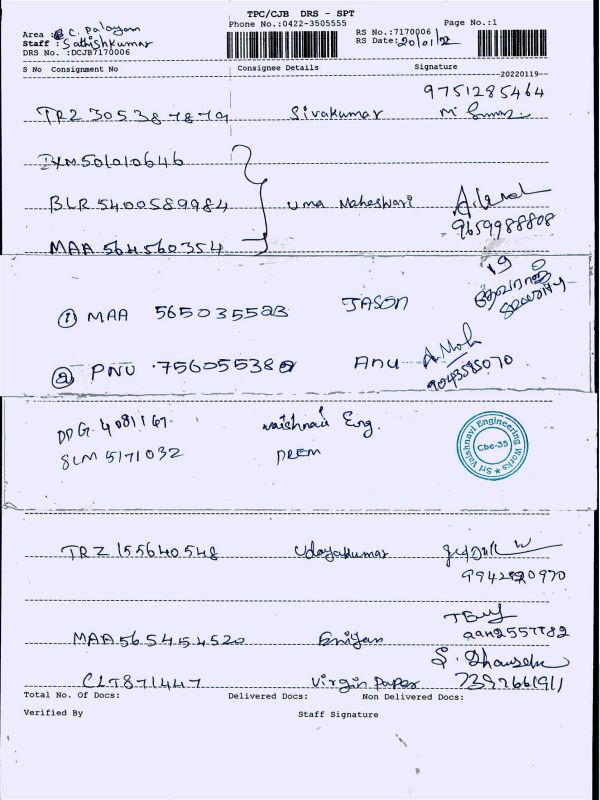 TPC/CJB DRS - SPT
Phone No.:0422-3505555 Page No.:1
Area : C. Palayam RS No.:7170006
Staff : Sathishkumar RS Date: 20/01/22
DRS No. :DCJB7170006
S No Consignment No Consignee Details Signature
--20220119--
9751285464
TRZ 305387879 Sivakumar
BXM501010646
BLR 5400589984 Uma Maheswari
9659988808
MAA 564560354
19
① MAA 565035523 JASON
தேவராஜ்
Security
② PNU 756055382 Anu
9043585070
DDG 4081167 Vaishnavi Eng.
SLM 5171032 PREM
Sri Vaishnavi Engineering Works ★ Cbe-35
TRZ 155640548 Udayakumar
MAA565454520 Eniyan
S. Dhansekar
CLT871447 Virgin Paper 7397661911
Total No. Of Docs: Delivered Docs: Non Delivered Docs:
Verified By Staff Signature